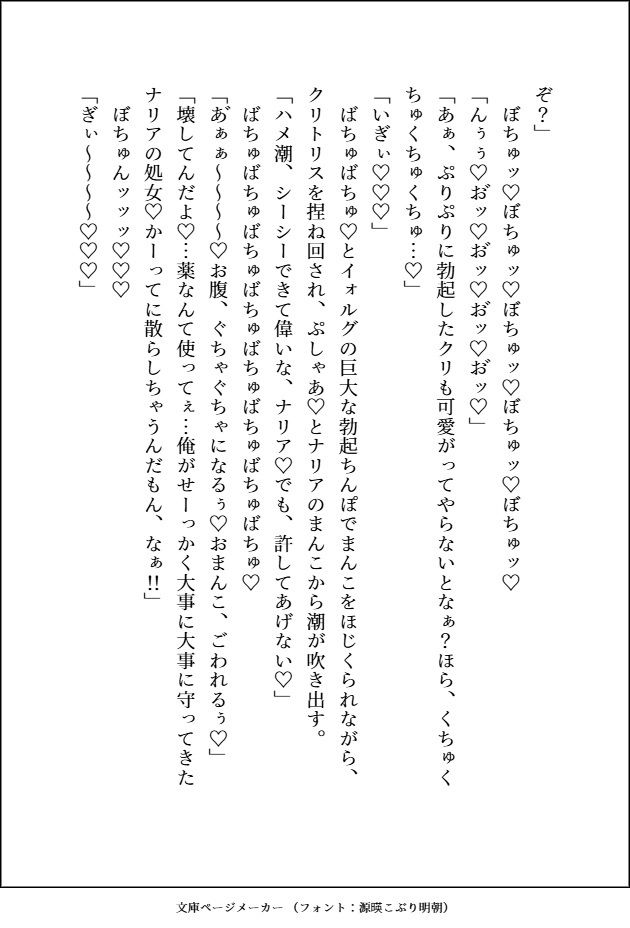 ぞ？」
　ぼちゅッ♡ぼちゅッ♡ぼちゅッ♡ぼちゅッ♡ぼちゅッ♡
「んぅぅ♡お゙ッ♡お゙ッ♡お゙ッ♡お゙ッ♡」
「あぁ、ぷりぷりに勃起したクリも可愛がってやらないとなぁ？ほら、くちゅく
ちゅくちゅくちゅ…♡」
「いぎぃ♡♡♡」
　ばちゅばちゅ♡とイォルグの巨大な勃起ちんぽでまんこをほじくられながら、
クリトリスを捏ね回され、ぷしゃあ♡とナリアのまんこから潮が吹き出す。
「ハメ潮、シーシーできて偉いな、ナリア♡でも、許してあげない♡」
　ばちゅばちゅばちゅばちゅばちゅばちゅばちゅばちゅ♡
「あ゙ぁぁ〜〜〜〜♡お腹、ぐちゃぐちゃになるぅ♡おまんこ、ごわれるぅ♡」
「壊してんだよ♡…薬なんて使ってぇ…俺がせーっかく大事に大事に守ってきた
ナリアの処女♡かーってに散らしちゃうんだもん、なぁ!!」
　ぼちゅんッッッ♡♡♡
「ぎぃ〜〜〜〜♡♡♡」
文庫ページメーカー （フォント：源暎こぶり明朝）